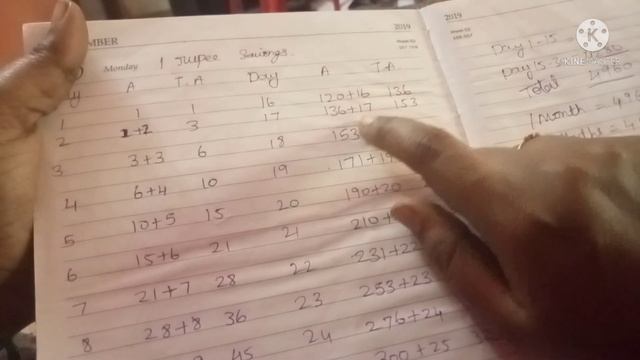 MBER
2019
Monday 1 Rupee Savings
A T.A Day A T.A
1 1 1 16 120+16 136
2 1+2 3 17 136+17 153
3 3+3 6 18 153
4 6+4 10 19 171+19
5 10+5 15 20 190+20
6 15+6 21 21 210+
7 21+7 28 22 231+22
8 28+8 36 23 253+23
45 24 276+24
300+25
2019
Day 1-15 =
Day 15-3
Total 4960
1 Month = 496
KINEMASTER